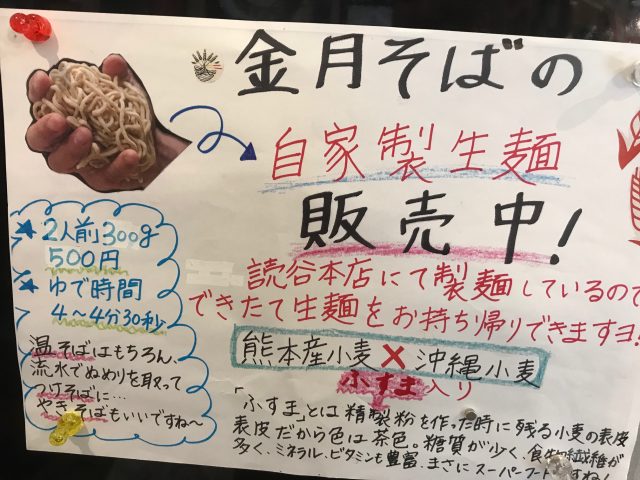 金月そばの
自家製生麺
販売中!
読谷本店にて製麺しているので
できたて生麺をお持ち帰りできますヨ!
熊本産小麦×沖縄小麦
ふすま入り
「ふすま」とは精製粉を作った時に残る小麦の表皮
表皮だから色は茶色。糖質が少く、食物繊維が
多く、ミネラル・ビタミンも豊富。まさにスーパーフードですね!
★2人前300g
500円
★ゆで時間
4〜4分30秒
温そばはもちろん、
流水でぬめりを取って
つけそばに…
やきそばもいいですね〜